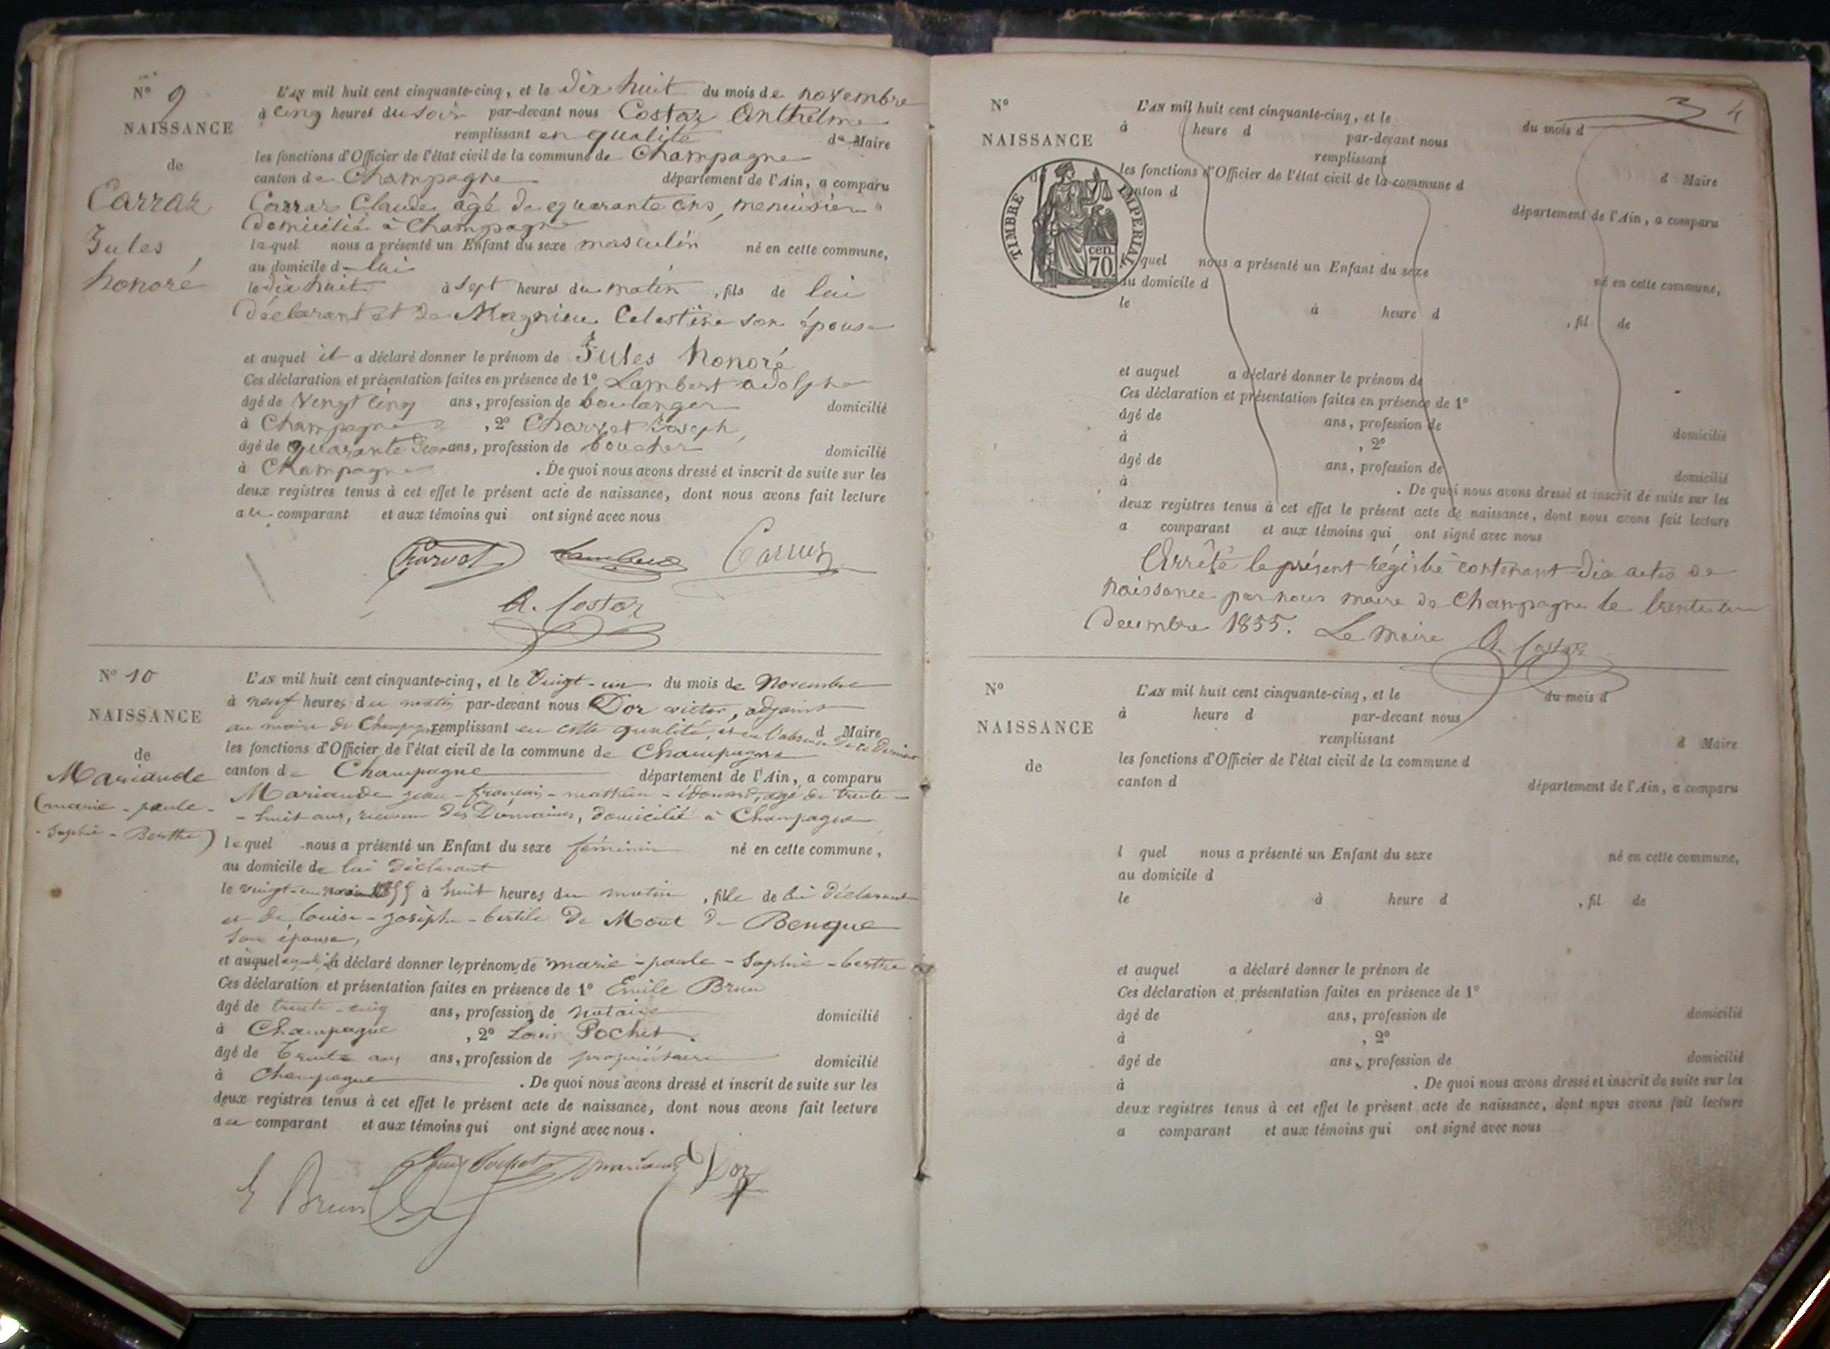 Nº 9
NAISSANCE
de
Carraz
Jules
honoré
L'AN mil huit cent cinquante-cinq, et le dix huit du mois de novembre
à cinq heures du soir par-devant nous Costaz Anthelme
remplissant en qualité de Maire
les fonctions d'Officier de l'état civil de la commune de Champagne
canton de Champagne département de l'Ain, a comparu
Carraz Claude âgé de quarante ans, menuisier
domicilié à Champagne
lequel nous a présenté un Enfant du sexe masculin né en cette commune,
au domicile de lui
le dix huit à sept heures du matin, fils de lui
déclarant et de Magnieu Celestine son épouse
et auquel il a déclaré donner le prénom de Jules honoré
Ces déclaration et présentation faites en présence de 1º Lambert adolphe
âgé de vingt cinq ans, profession de boulanger domicilié
à Champagne, 2º Charvet Joseph,
âgé de quarante deux ans, profession de boucher domicilié
à Champagne. De quoi nous avons dressé et inscrit de suite sur les
deux registres tenus à cet effet le présent acte de naissance, dont nous avons fait lecture
au comparant et aux témoins qui ont signé avec nous
Charvet Lambert Carraz
A. Costaz
Nº 10
NAISSANCE
de
Mariande
(marie-paule-
-Sophie-Berthe)
L'AN mil huit cent cinquante-cinq, et le Vingt-un du mois de Novembre
à neuf heures du matin par-devant nous Dor victor, adjoint
au maire de Champagne remplissant en cette qualité, et en l'absence de ce dernier d Maire
les fonctions d'Officier de l'état civil de la commune de Champagne
canton de Champagne département de l'Ain, a comparu
Mariande jean-françois-mathieu-édouard, âgé de trente-
-huit ans, receveur des Domaines, domicilié à Champagne
lequel nous a présenté un Enfant du sexe féminin né en cette commune,
au domicile de lui déclarant
le vingt-un 1855 à huit heures du matin, fille de lui déclarant
et de louise-josèphe-bertile De Mont de Benque
son épouse,
et auquel a déclaré donner le prénom de marie-paule-Sophie-berthe
Ces déclaration et présentation faites en présence de 1º Emile Brun
âgé de trente-cinq ans, profession de notaire domicilié
à Champagne, 2º Louis Pochet.
âgé de trente ans ans, profession de propriétaire domicilié
à Champagne. De quoi nous avons dressé et inscrit de suite sur les
deux registres tenus à cet effet le présent acte de naissance, dont nous avons fait lecture
au comparant et aux témoins qui ont signé avec nous.
E Brun Louis Pochet Mariande Dor
3 4
Nº
NAISSANCE
TIMBRE IMPERIAL
70 cen.
L'AN mil huit cent cinquante-cinq, et le du mois d
à heure d par-devant nous
remplissant d Maire
les fonctions d'Officier de l'état civil de la commune d
canton d département de l'Ain, a comparu
quel nous a présenté un Enfant du sexe né en cette commune,
au domicile d
le à heure d, fil de
et auquel a déclaré donner le prénom de
Ces déclaration et présentation faites en présence de 1º
âgé de ans, profession de domicilié
à, 2º
âgé de ans, profession de domicilié
à. De quoi nous avons dressé et inscrit de suite sur les
deux registres tenus à cet effet le présent acte de naissance, dont nous avons fait lecture
a comparant et aux témoins qui ont signé avec nous
Arrêté le présent régistre contenant dix actes de
naissance par nous maire de Champagne le trente un
décembre 1855. Le Maire A. Costaz
Nº
NAISSANCE
de
L'AN mil huit cent cinquante-cinq, et le du mois d
à heure d par-devant nous
remplissant d Maire
les fonctions d'Officier de l'état civil de la commune d
canton d département de l'Ain, a comparu
l quel nous a présenté un Enfant du sexe né en cette commune,
au domicile d
le à heure d, fil de
et auquel a déclaré donner le prénom de
Ces déclaration et présentation faites en présence de 1º
âgé de ans, profession de domicilié
à, 2º
âgé de ans, profession de domicilié
à. De quoi nous avons dressé et inscrit de suite sur les
deux registres tenus à cet effet le présent acte de naissance, dont nous avons fait lecture
a comparant et aux témoins qui ont signé avec nous